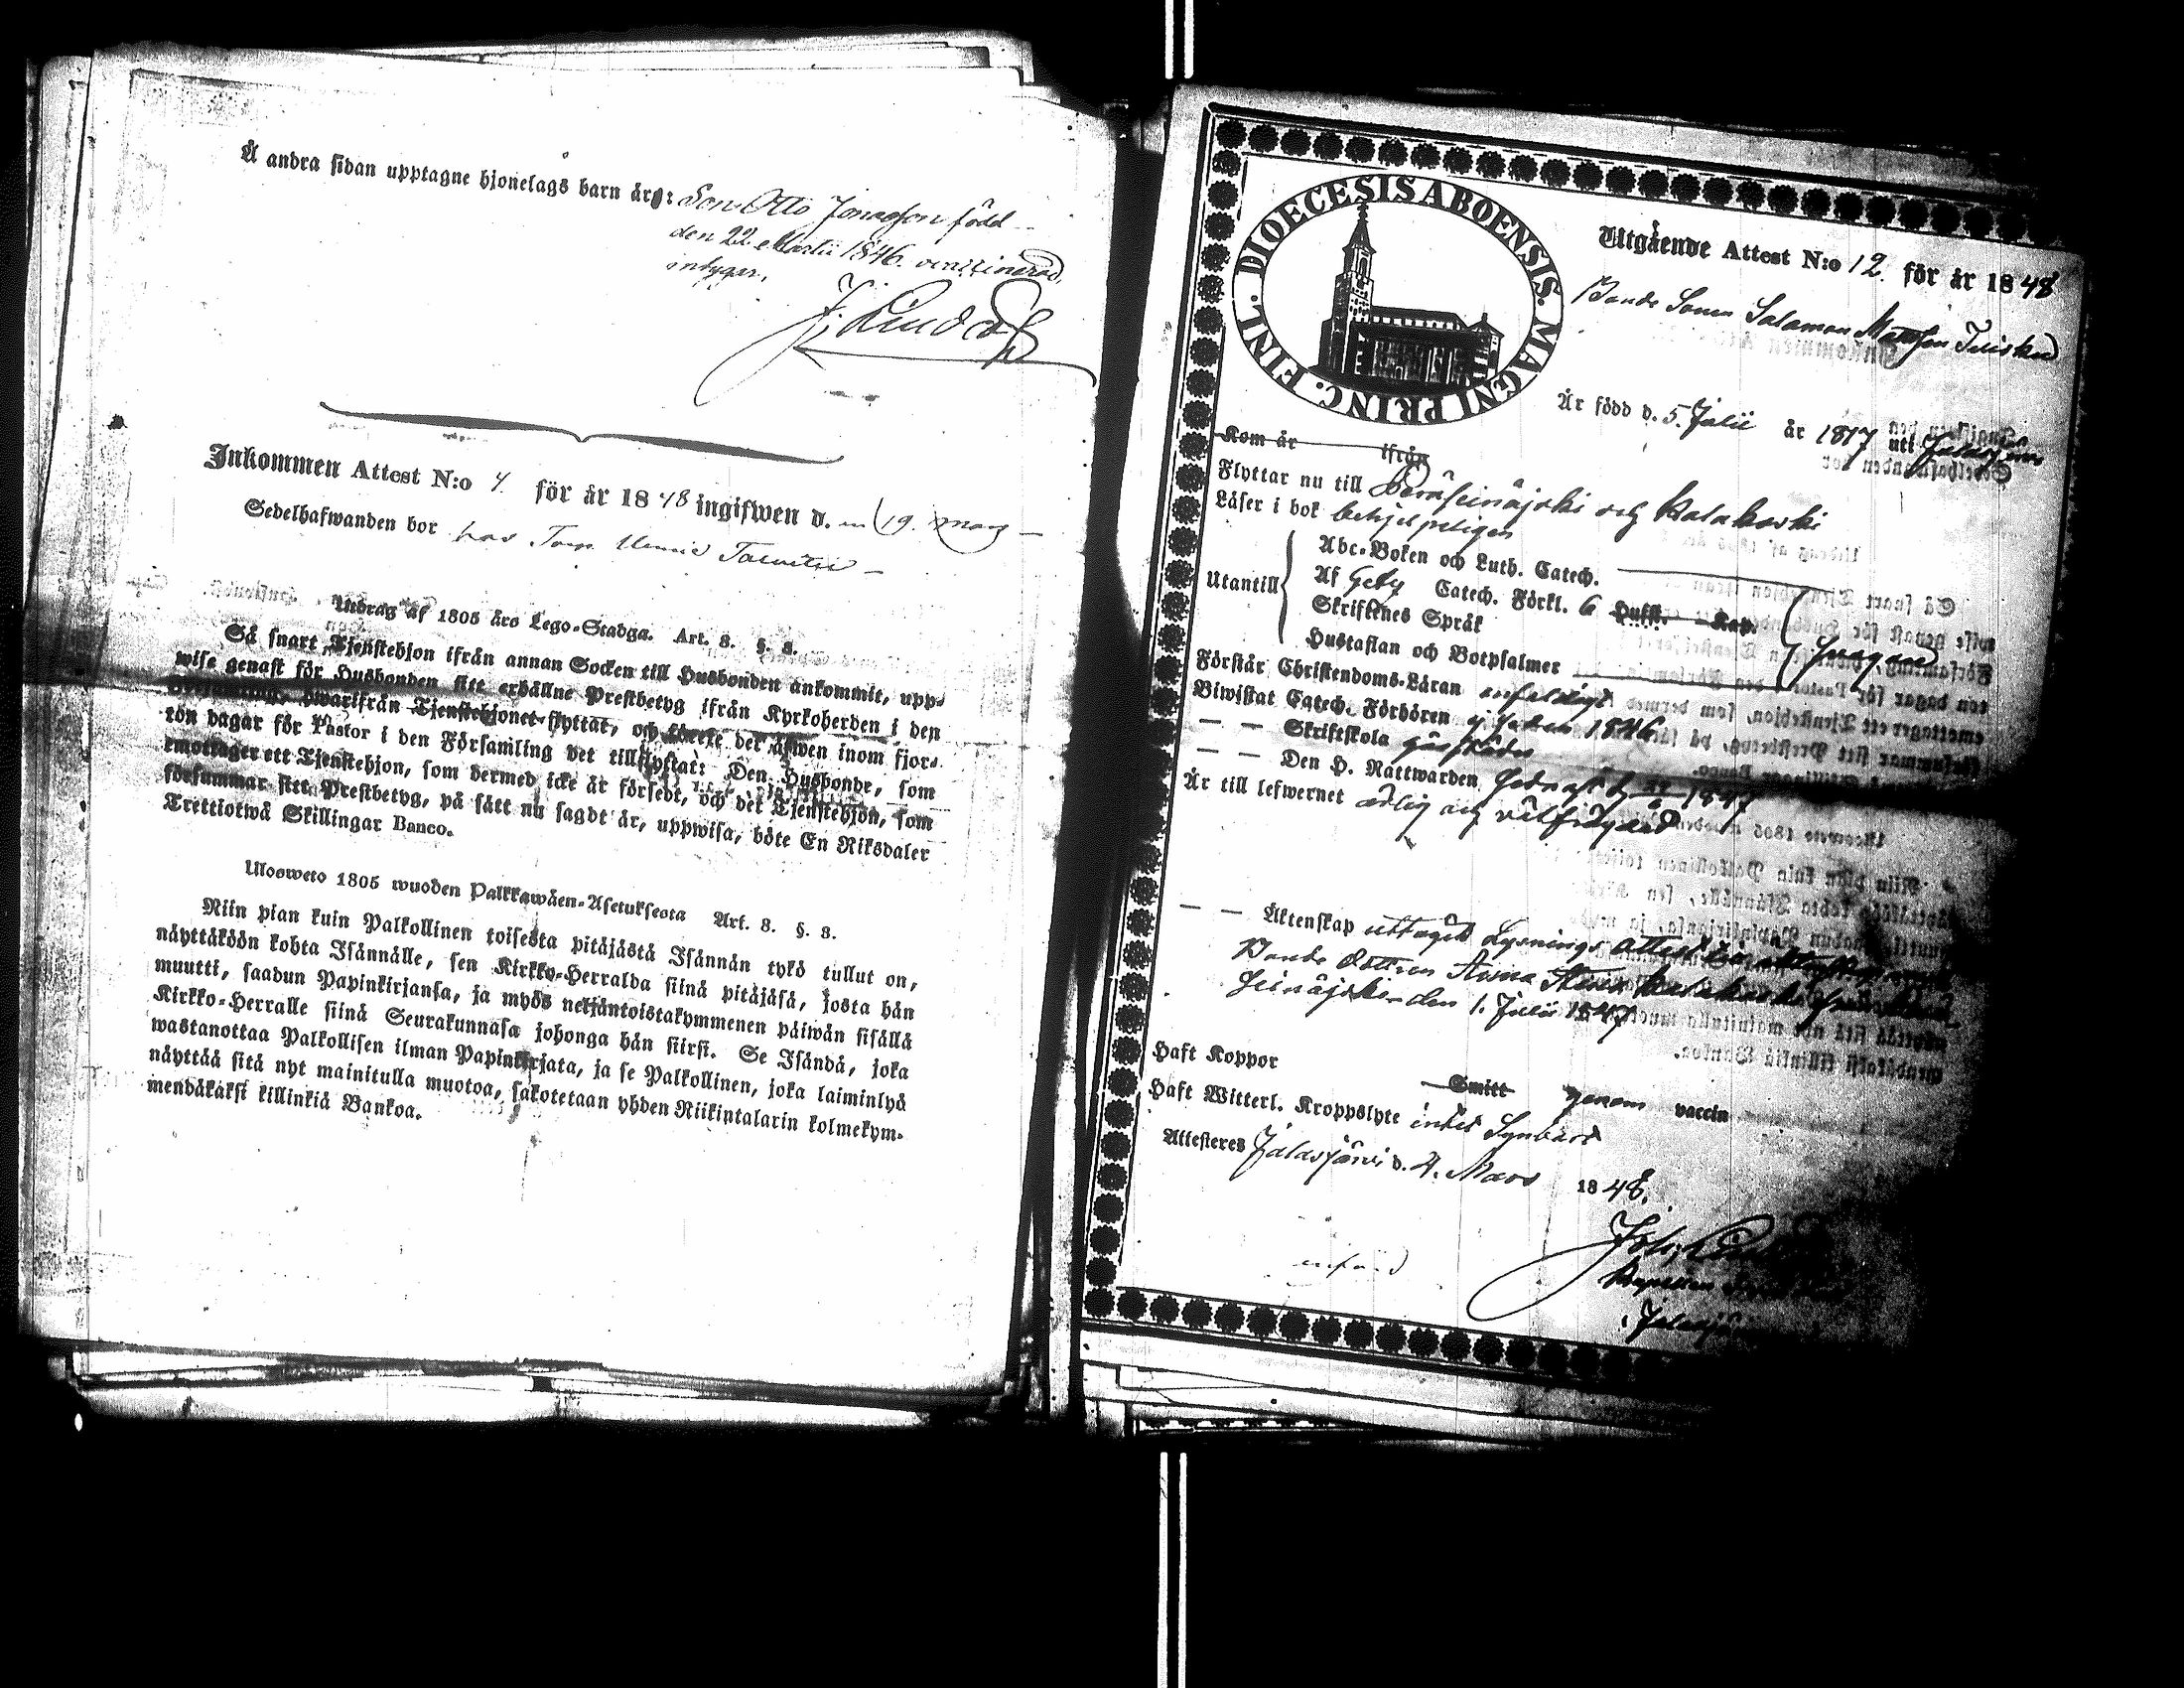 Å andra sidan upptagne hjonelags barn äro: Son Otto Jonasson född
den 22 Martii 1846. vaccinerad,
intygar,
J. Lind
Inkommen Attest N:o 4. för år 1848 ingifwen d. 19. Mars
Sedelhafwanden bor hos Torp.
Utdrag af 1805 års Lego-Stadga. Art. 8. §. 8.
Så snart Tjenstehjon ifrån annan Socken till Husbonden ankommit, upp-
wise genast för Husbonden sitt erhållne Prestbetyg ifrån Kyrkoherden i den
Församling, hwarifrån Tjenstehjonet flyttat, och förete det äfwen inom fjor-
ton dagar för Pastor i den Församling det tillflyttat: Den Husbonde, som
emottager ett Tjenstehjon, som dermed icke är försedt, och det Tjenstehjon, som
försummar sitt Prestbetyg, på sätt nu sagdt är, uppwisa, böte En Riksdaler
Trettiotwå Skillingar Banco.
Ulosweto 1805 wuoden Palkkawäen-Asetuksesta Art. 8. §. 8.
Niin pian kuin Palkollinen toisesta pitäjästä Isännän tykö tullut on,
näyttäköön kohta Isännälle, sen Kirkko-Herralda siinä pitäjäsä, josta hän
muutti, saadun Papinkirjansa, ja myös neljäntoistakymmenen päiwän sisällä
Kirkko-Herralle siinä Seurakunnasa johonga hän siirsi. Se Isändä, joka
wastanottaa Palkollisen ilman Papinkirjata, ja se Palkollinen, joka laiminlyö
näyttää sitä nyt mainitulla muotoa, sakotetaan yhden Riikintalarin kolmekym-
mendäkaksi killinkiä Bankoa.
DIOECESIS ABOENSIS. MAGNI PRINC. FINL.
Utgående Attest N:o 12. för år 1848
Bonde Sonen Salomon Mattsson
Är född d. 5. Julii år 1817 uti
Kom år ifrån
Flyttar nu till Peräseinäjoki och Kalakoski
Läser i bok behjelpeligen
Utantill
Abc-Boken och Luth. Catech.
Af Catech. Förkl. 6 Huff. Kap.
Skriftenes Språk
Hustaflan och Botpsalmer
Förstår Christendoms-Läran enfaldigt
Biwistat Catech. Förhören 1846
— — Skriftskola
— — Den H. Nattwarden 1847
Är till lefwernet ärlig och välfrägdad
— — Äktenskap uttagit Lysnings Attest
Bonde dottren Anna
Seinäjoki den 1. Julii 1847
Haft Koppor Smitt genom vaccin
Haft Witterl. Kroppslyte intet Synbart
Attesteres Jalasjärvi d. 4. Mars 1848.
Kapellan
Jalasjärvi